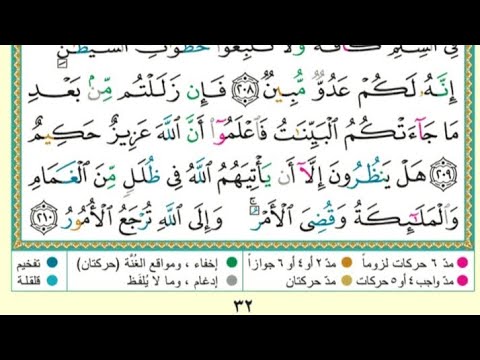 فِى ٱلسِّلْمِ كَآفَّةً وَلَا تَتَّبِعُوا۟ خُطُوَٰتِ ٱلشَّيْطَـٰنِ
إِنَّهُۥ لَكُمْ عَدُوٌّ مُّبِينٌ ٢٠٨ فَإِن زَلَلْتُم مِّنۢ بَعْدِ
مَا جَآءَتْكُمُ ٱلْبَيِّنَـٰتُ فَٱعْلَمُوٓا۟ أَنَّ ٱللَّهَ عَزِيزٌ حَكِيمٌ
٢٠٩ هَلْ يَنظُرُونَ إِلَّآ أَن يَأْتِيَهُمُ ٱللَّهُ فِى ظُلَلٍ مِّنَ ٱلْغَمَامِ
وَٱلْمَلَـٰٓئِكَةُ وَقُضِىَ ٱلْأَمْرُ ۚ وَإِلَى ٱللَّهِ تُرْجَعُ ٱلْأُمُورُ ٢١٠
مدّ ٦ حركات لزوماً مدّ ٢ أو ٤ أو ٦ جوازاً إخفاء ، ومواقع الغُنَّة (حركتان) تفخيم
مدّ واجب ٤ أو ٥ حركات مدّ حركتان إدغام ، وما لا يُلفَظ قلقلة
٣٢